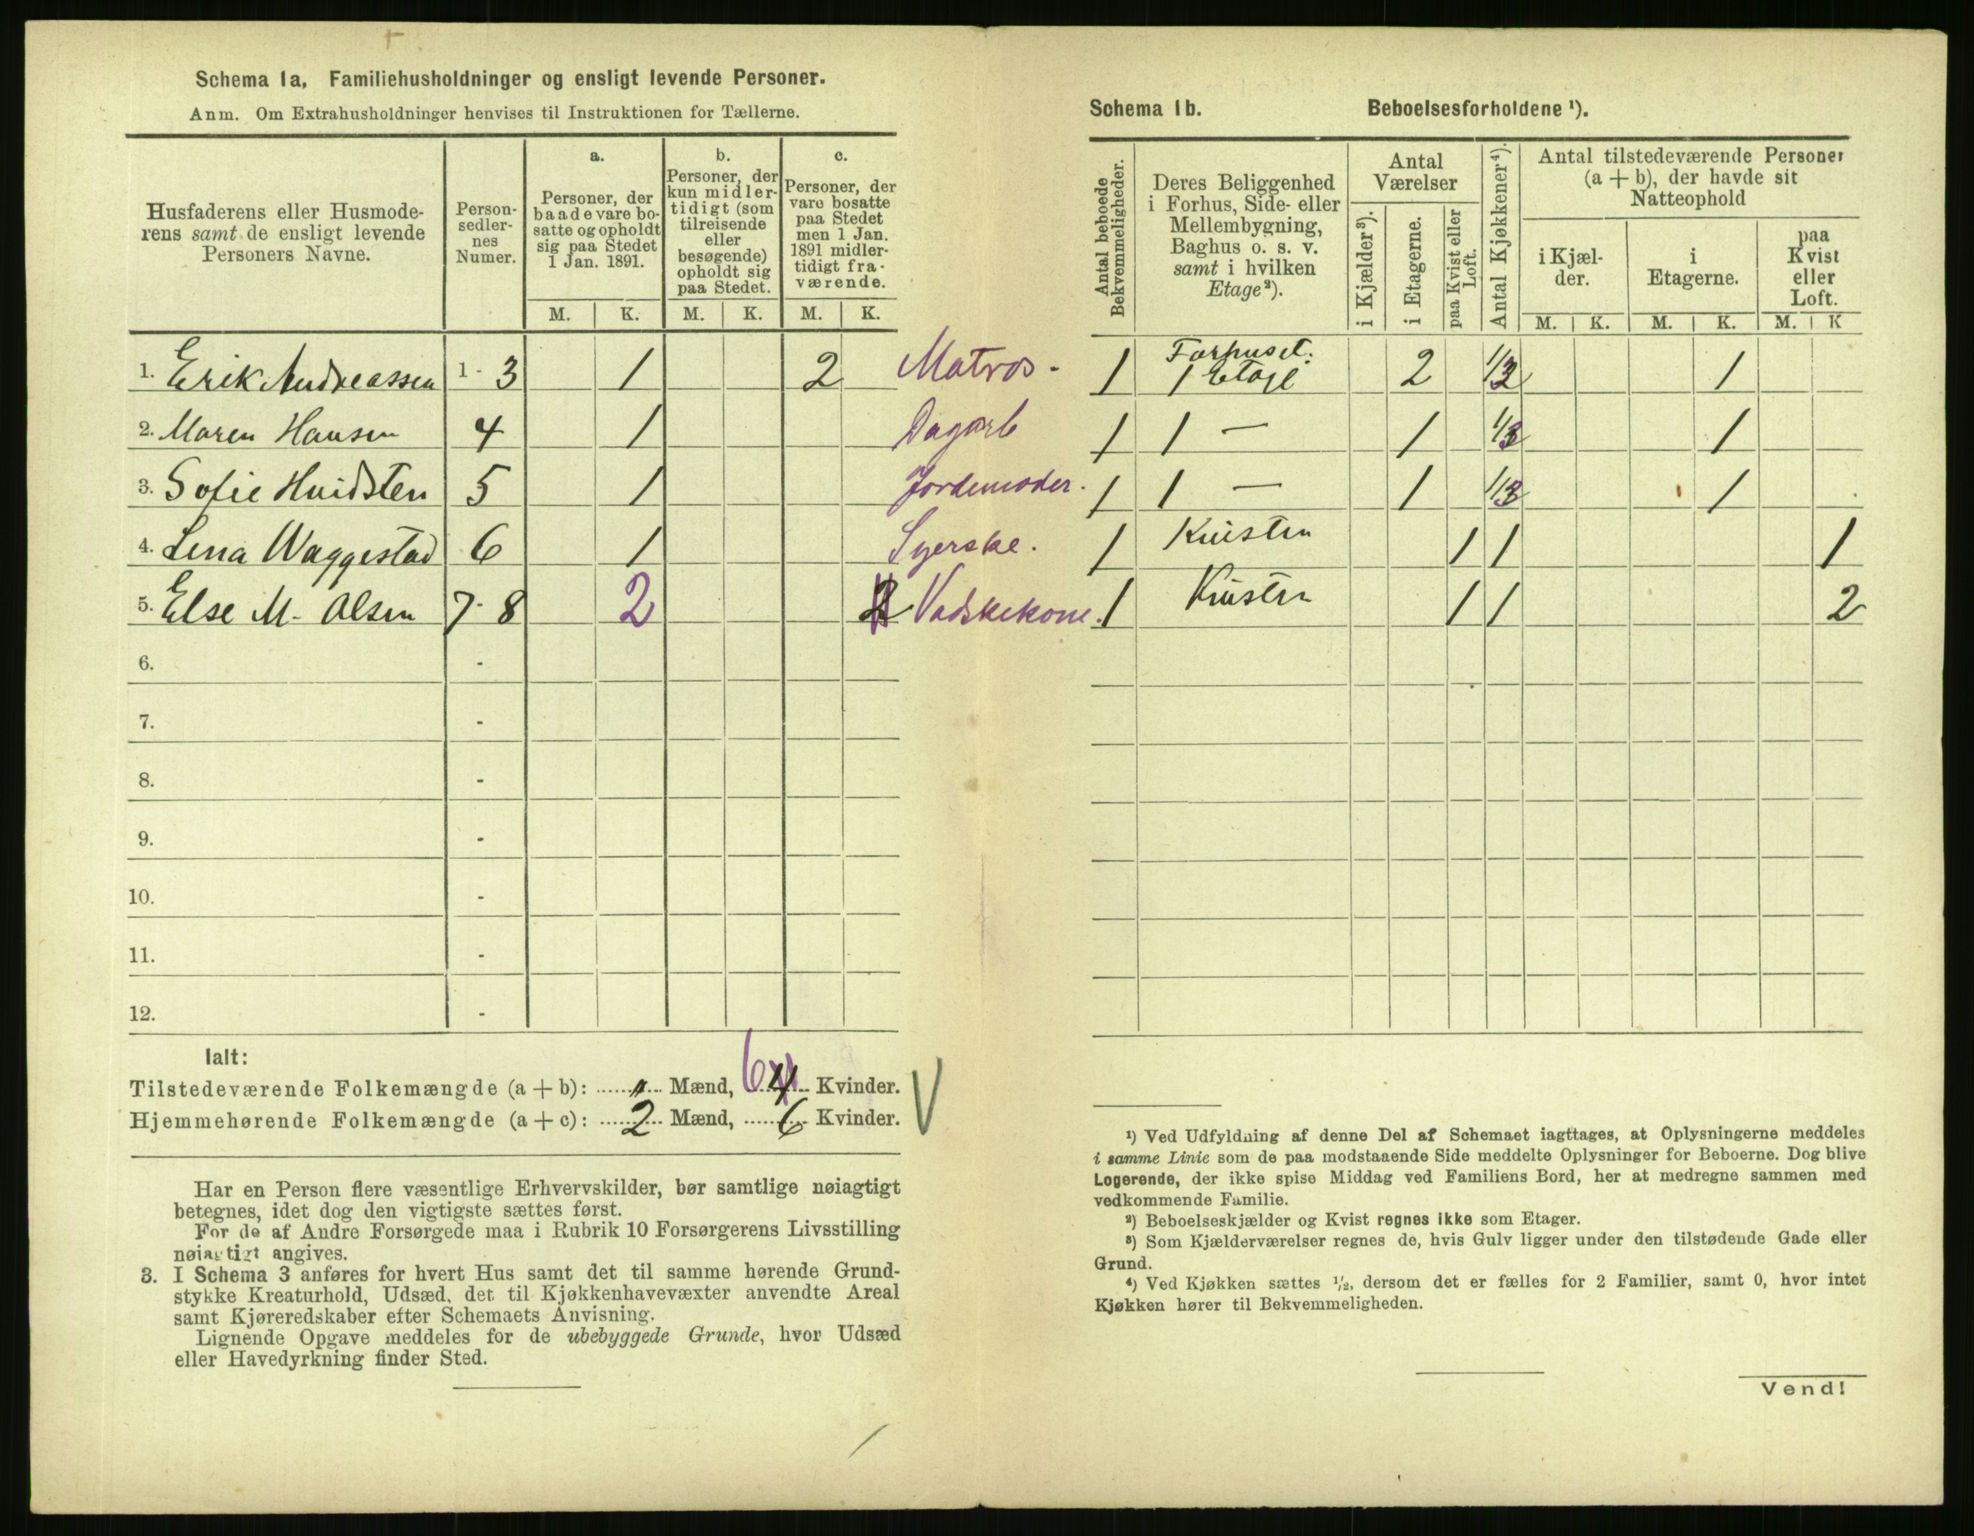 Schema 1a. Familiehusholdninger og ensligt levende Personer.
Anm. Om Extrahusholdninger henvises til Instruktionen for Tællerne.
Husfaderens eller Husmode-
rens samt de ensligt levende
Personers Navne.
Person-
sedler-
nes
Numer.
a.
Personer, der
baade vare bo-
satte og opholdt
sig paa Stedet
1 Jan. 1891.
b.
Personer, der
kun midler-
tidigt (som
tilreisende
eller
besøgende)
opholdt sig
paa Stedet.
c.
Personer, der
vare bosatte
paa Stedet
men 1 Jan.
1891 midler-
tidigt fra-
værende.
M. K. M. K. M. K.
1. Erik Andreassen 1 - 3 1 2 Matros -
2. Maren Hansen 4 1 Dagarb
3. Sofie Hvidsten 5 1 Jordemoder.
4. Lena Waggestad 6 1 Syerske.
5. Else M. Olsen 7 - 8 2 2 Vadskekone.
6. -
7. -
8. -
9. -
10. -
11. -
12. -
Ialt:
Tilstedeværende Folkemængde (a + b): " Mænd, 6 4 Kvinder.
Hjemmehørende Folkemængde (a + c): 2 Mænd, 6 Kvinder. V
Har en Person flere væsentlige Erhvervskilder, bør samtlige nøiagtigt
betegnes, idet dog den vigtigste sættes først.
For de af Andre Forsørgede maa i Rubrik 10 Forsørgerens Livsstilling
nøiagtigt angives.
3. I Schema 3 anføres for hvert Hus samt det til samme hørende Grund-
stykke Kreaturhold, Udsæd, det til Kjøkkenhavevæxter anvendte Areal
samt Kjøreredskaber efter Schemaets Anvisning.
Lignende Opgave meddeles for de ubebyggede Grunde, hvor Udsæd
eller Havedyrkning finder Sted.
Schema 1b. Beboelsesforholdene ¹).
Antal beboede
Bekvemmeligheder.
Deres Beliggenhed
i Forhus, Side- eller
Mellembygning,
Baghus o. s. v.
samt i hvilken
Etage²).
Antal
Værelser
i Kjælder³).
i Etagerne.
paa Kvist eller
Loft.
Antal Kjøkkener⁴).
Antal tilstedeværende Personer
(a + b), der havde sit
Natteophold
i Kjæl-
der.
i
Etagerne.
paa
Kvist
eller
Loft.
M. K. M. K. M. K
1 Forhuset.
1 Etage 2 1/3 1
1 1 — 1 1/3 1
1 1 — 1 1/3 1
1 Kvisten 1 1 1
1 Kvisten 1 1 2
¹) Ved Udfyldning af denne Del af Schemaet iagttages, at Oplysningerne meddeles
i samme Linie som de paa modstaaende Side meddelte Oplysninger for Beboerne. Dog blive
Logerende, der ikke spise Middag ved Familiens Bord, her at medregne sammen med
vedkommende Familie.
²) Beboelseskjælder og Kvist regnes ikke som Etager.
³) Som Kjælderværelser regnes de, hvis Gulv ligger under den tilstødende Gade eller
Grund.
⁴) Ved Kjøkken sættes ½, dersom det er fælles for 2 Familier, samt 0, hvor intet
Kjøkken hører til Bekvemmeligheden.
Vend!